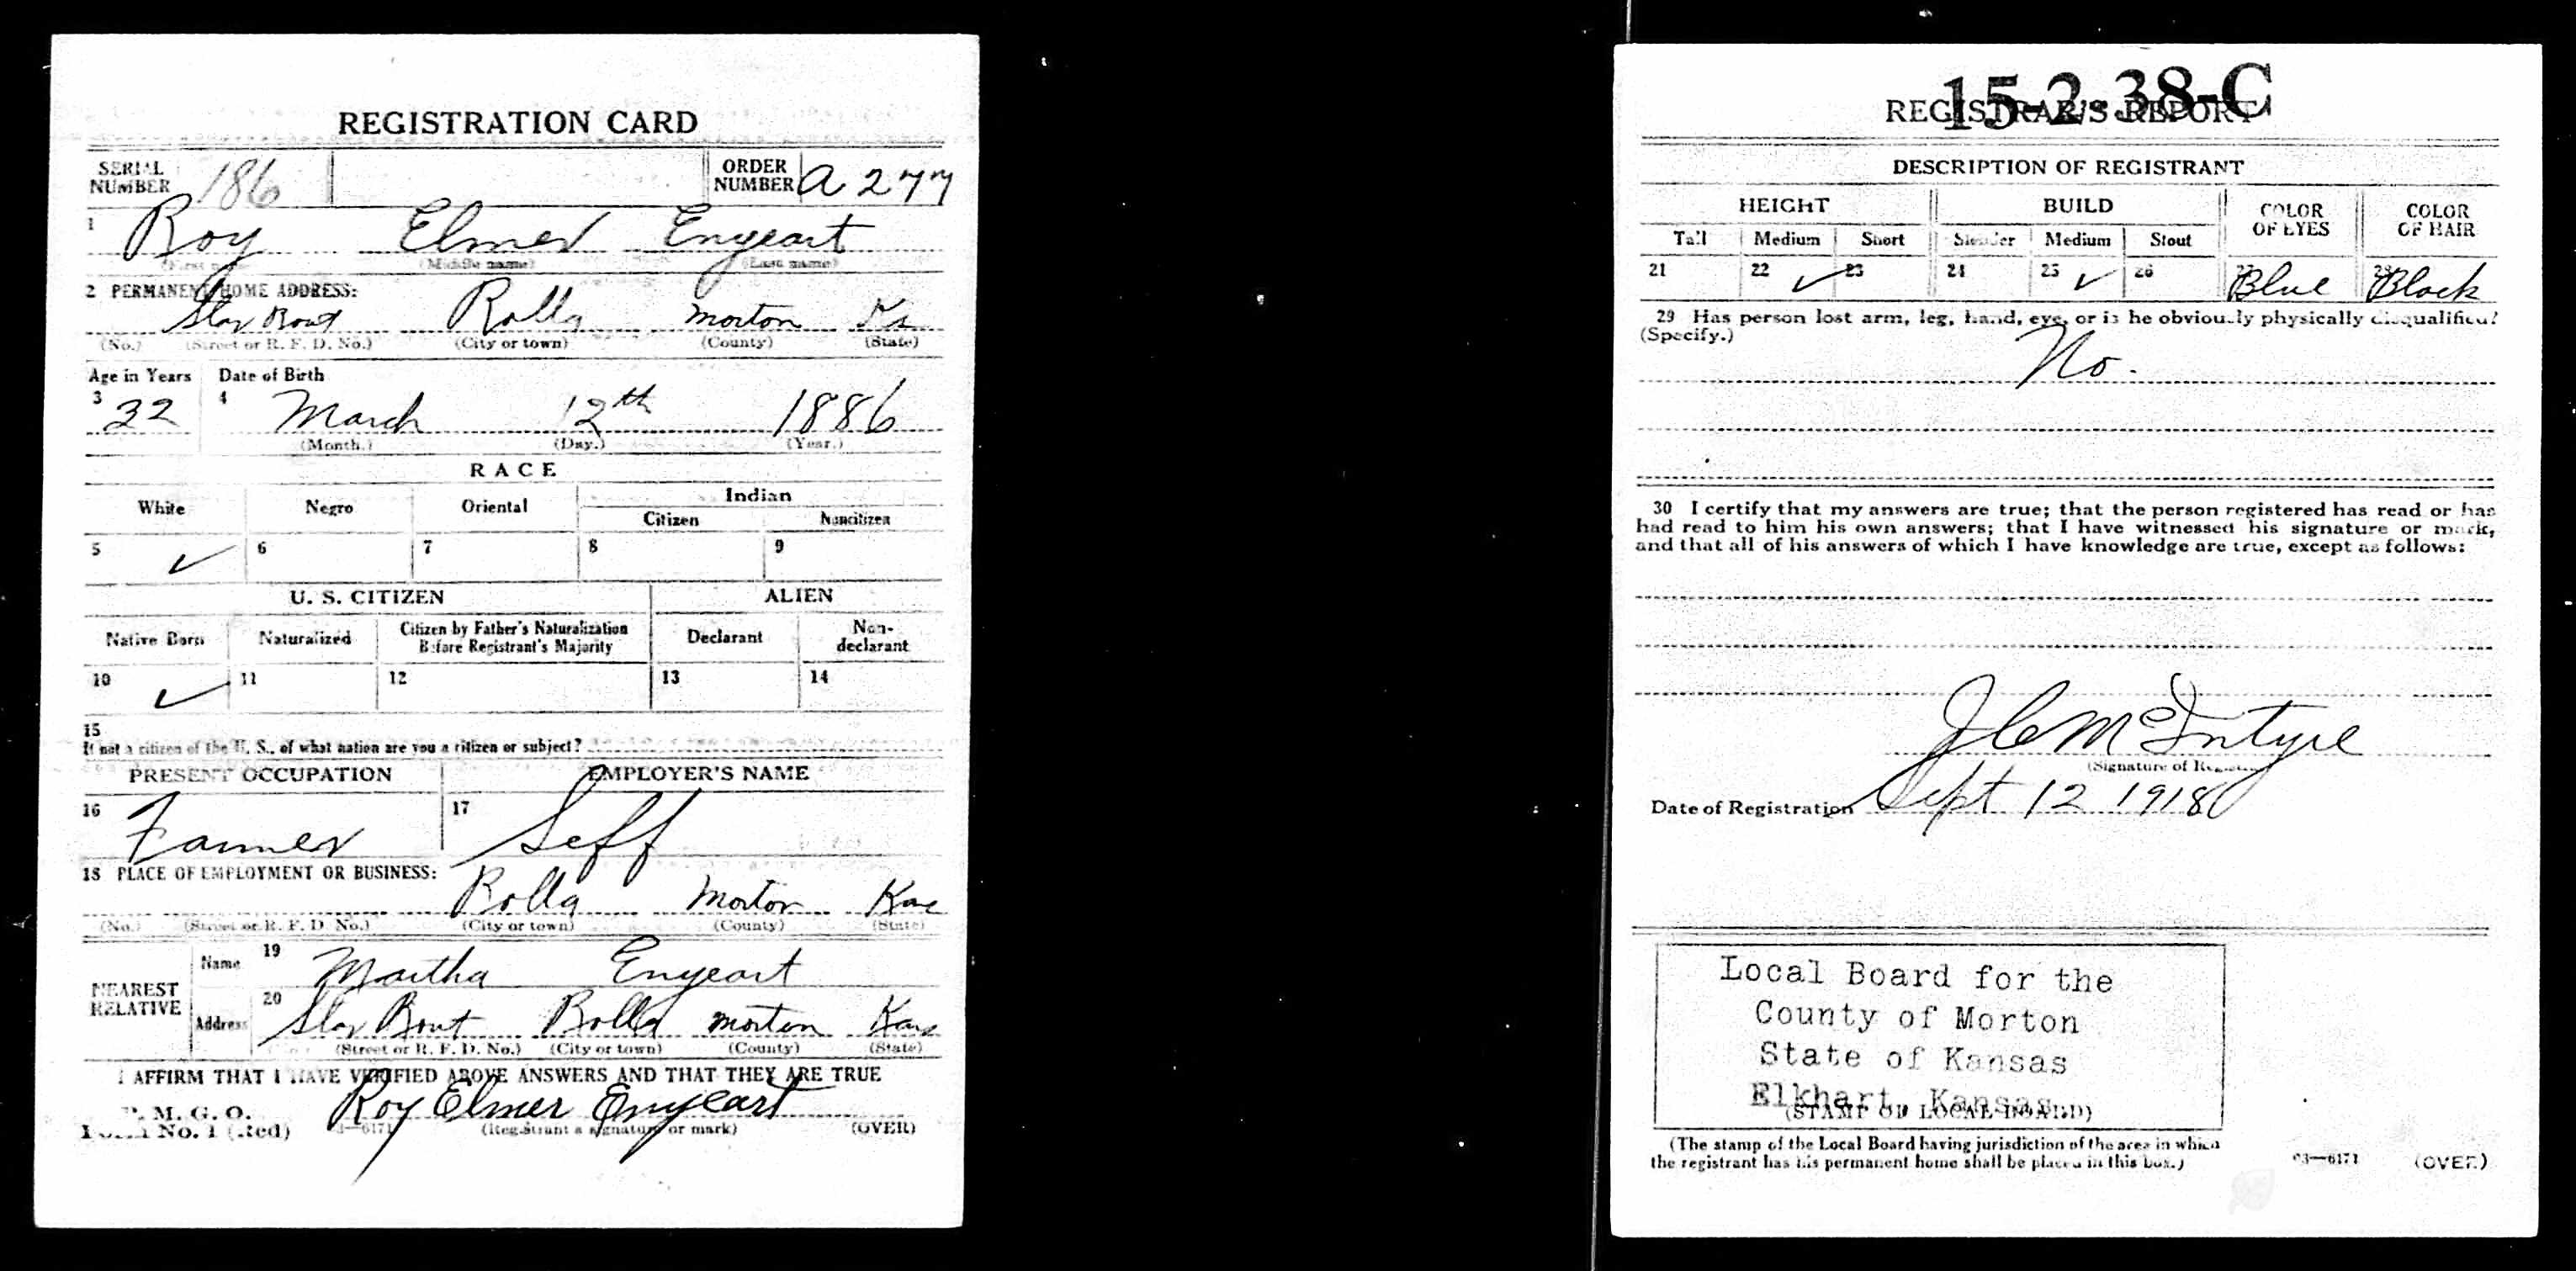 REGISTRATION CARD
SERIAL NUMBER 186 ORDER NUMBER A 277
1 Roy Elmer Enyeart
(First name) (Middle name) (Last name)
2 PERMANENT HOME ADDRESS:
Star Rout Rolla Morton Ks
(No.) (Street or R. F. D. No.) (City or town) (County) (State)
Age in Years Date of Birth
3 32 4 March 12th 1886
(Month.) (Day.) (Year.)
RACE
White Negro Oriental Indian
Citizen Noncitizen
5 ✓ 6 7 8 9
U. S. CITIZEN ALIEN
Native Born Naturalized Citizen by Father's Naturalization Before Registrant's Majority Declarant Non-declarant
10 ✓ 11 12 13 14
15
If not a citizen of the U. S., of what nation are you a citizen or subject?
PRESENT OCCUPATION EMPLOYER'S NAME
16 Farmer 17 Self
18 PLACE OF EMPLOYMENT OR BUSINESS:
Rolla Morton Kas
(No.) (Street or R. F. D. No.) (City or town) (County) (State)
NEAREST RELATIVE
Name 19 Martha Enyeart
Address 20 Star Rout Rolla Morton Kans
(Street or R. F. D. No.) (City or town) (County) (State)
I AFFIRM THAT I HAVE VERIFIED ABOVE ANSWERS AND THAT THEY ARE TRUE
P. M. G. O.
Form No. 1 (Red) 3—6171 Roy Elmer Enyeart
(Registrant's signature or mark) (OVER)
15-2-38-C
REGISTRAR'S REPORT
DESCRIPTION OF REGISTRANT
HEIGHT BUILD COLOR OF EYES COLOR OF HAIR
Tall Medium Short Slender Medium Stout
21 22 ✓ 23 24 25 ✓ 26 27 Blue 28 Black
29 Has person lost arm, leg, hand, eye, or is he obviously physically disqualified?
(Specify.)
No.
30 I certify that my answers are true; that the person registered has read or has
had read to him his own answers; that I have witnessed his signature or mark,
and that all of his answers of which I have knowledge are true, except as follows:
McIntyre
(Signature of Registrar)
Date of Registration Sept 12 1918
Local Board for the
County of Morton
State of Kansas
Elkhart, Kansas.
(STAMP OF LOCAL BOARD)
(The stamp of the Local Board having jurisdiction of the area in which
the registrant has his permanent home shall be placed in this box.)
03—6171 (OVER)